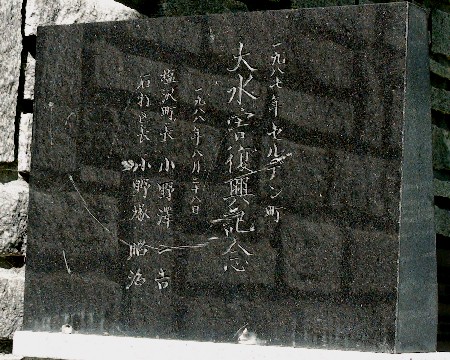 一九八七年セルデン町
大水害復興記念
一九八八年八月二十八日
塩沢町長 小野澤 吉
石打区長 小野塚 昭治